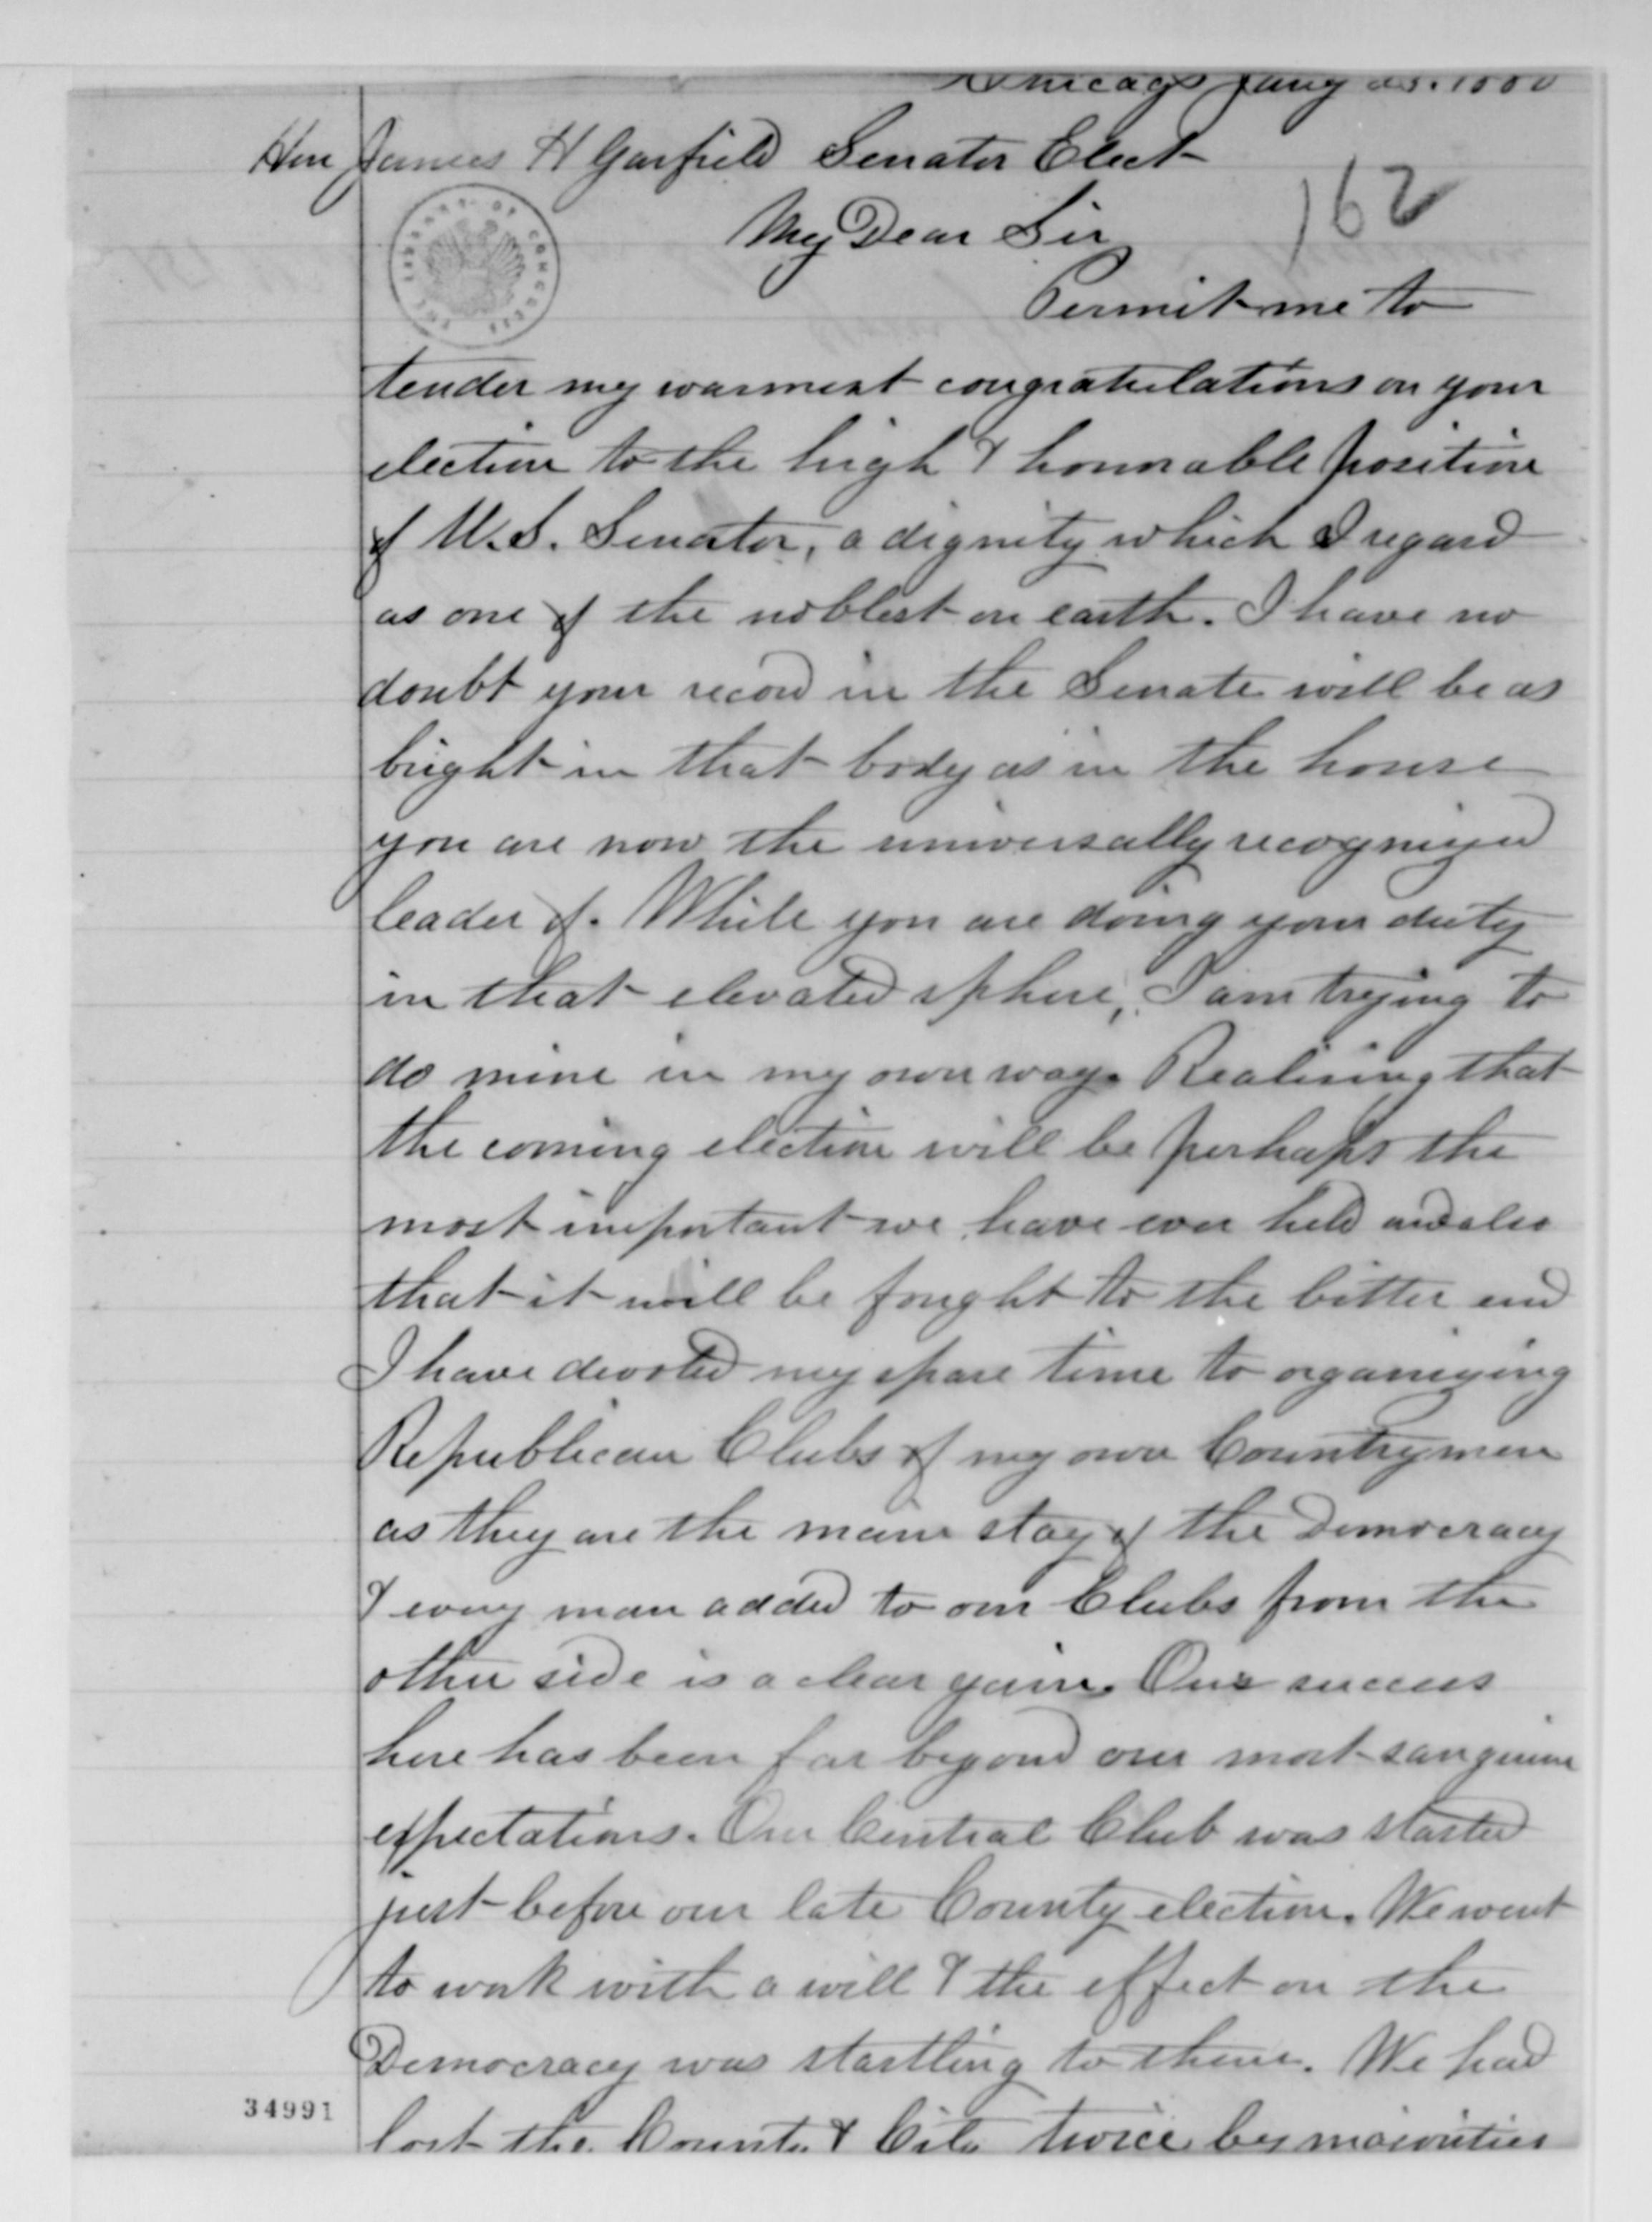 Chicago Jany 1880
Hon James H Garfield Senator Elect
162
My Dear Sir
THE LIBRARY OF CONGRESS
Permit me to
tender my warmest congratulations on your
election to the high & honorable position
of U.S. Senator, a dignity which I regard
as one of the noblest on earth. I have no
doubt your record in the Senate will be as
bright in that body as in the house
you are now the universally recognized
leader of. While you are doing your duty
in that elevated sphere, I am trying to
do mine in my own way. Realising that
the coming election will be perhaps the
most important we have ever held and also
that it will be fought to the bitter end
I have devoted my spare time to organizing
Republican Clubs of my own Countrymen
as they are the main stay of the Democracy
& every man added to our Clubs from the
other side is a clear gain. Our success
here has been far beyond our most sanguine
expectations. Our Central Club was started
just before our late County election. We went
to work with a will & the effect on the
Democracy was startling to them. We had
34991
lost the County & City twice by majorities